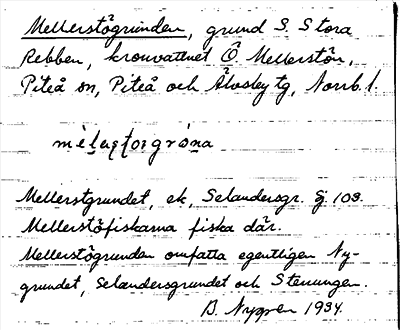 Mellerstögrunden, grund S. Stora
Rebben, kronvattnet Ö. Mellerstön,
Piteå sn, Piteå och Älvsby tg, Norrb. l.
Mellerstgrundet, ek, Selandersgr. Sj. 103.
Mellerstöfiskarna fiska där.
Mellerstögrunden omfatta egentligen Ny-
grundet, Selandersgrundet och Stenungen.
B. Nygren 1934.